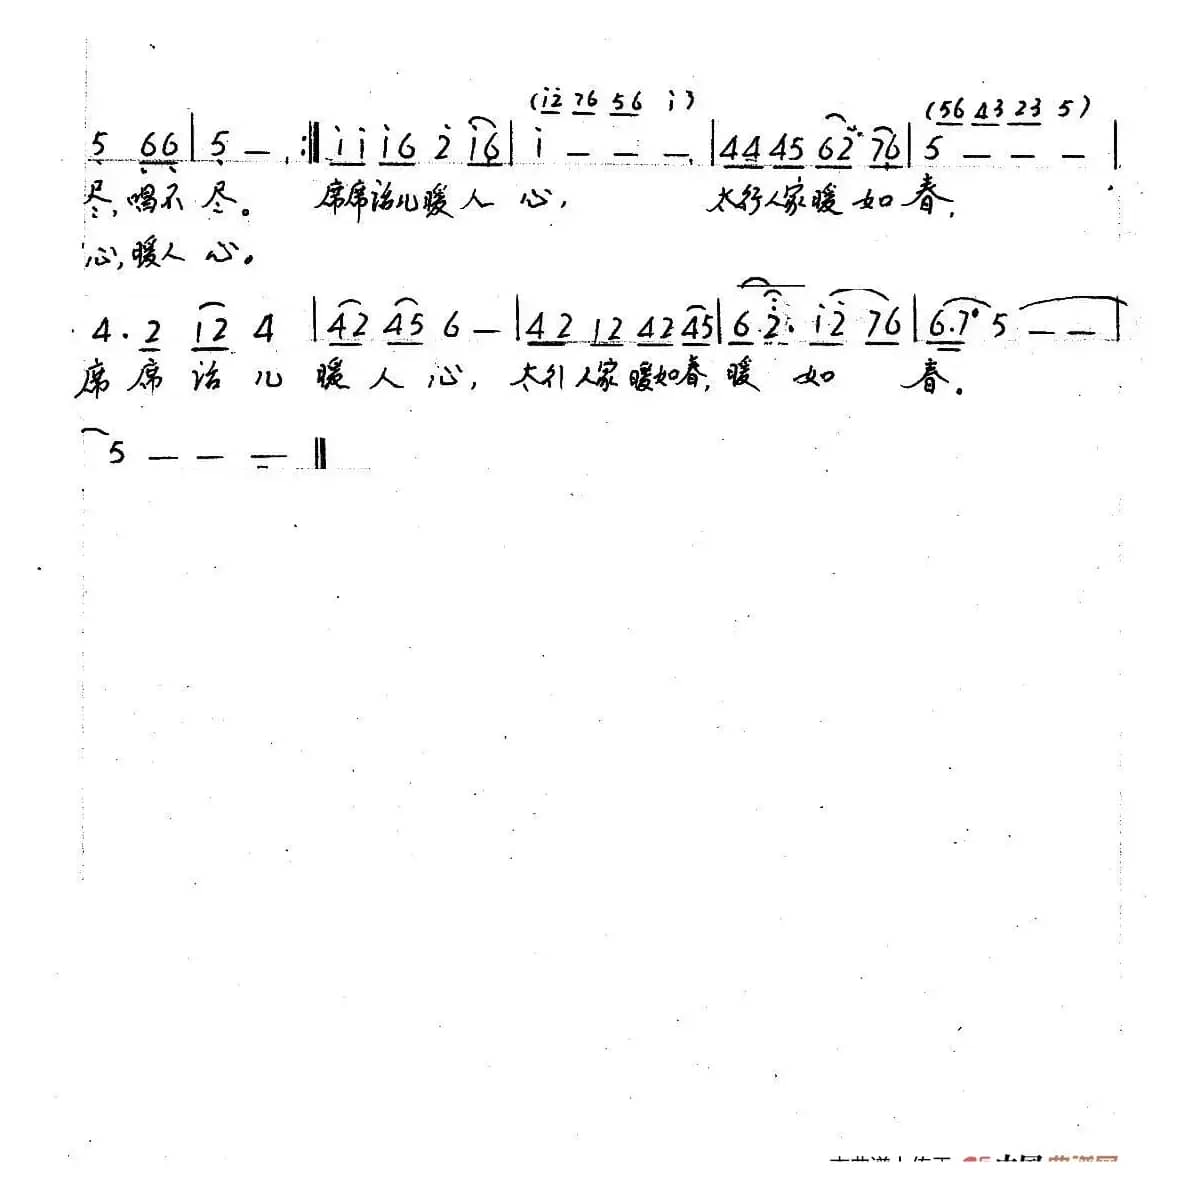 (i̇2̇ 76 56 i̇3) (56 43 23 5)
5̣ 6̣6̣ | 5̣ — :‖ i̇ i̇ i̇6 2̇ i̇6 | i̇ — — — | 44 45 62̇ 76 | 5 — — — |
尽,唱不尽。 席席话儿暖人心, 太行人家暖如春,
心,暖人心。
4. 2 12 4 | 42 45 6 — | 42 12 42 45 | 6. 2̇. i̇2̇ 76 | 6.7 5 — — |
席席话儿暖人心, 太行人家暖如春,暖如春。
5 — — — ‖